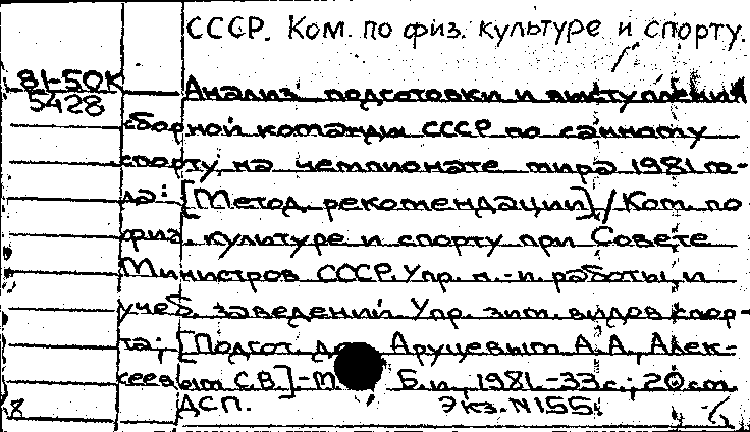 СССР. Ком. по физ. культуре и спорту.
81-50К
5428
Анализ подготовки и выступления
сборной команды СССР по санному
спорту на чемпионате мира 1981 го-
да: [Метод. рекомендации] / Ком. по
физ. культуре и спорту при Совете
Министров СССР. Упр. н.-и. работы и
учеб. заведений. Упр. зим. видов спор-
та; [Подгот. Аруцевым А.А., Алек-
сеевым С.В.]-М Б.и., 1981.-33с.; 20см.
ДСП. Экз. N155.
8